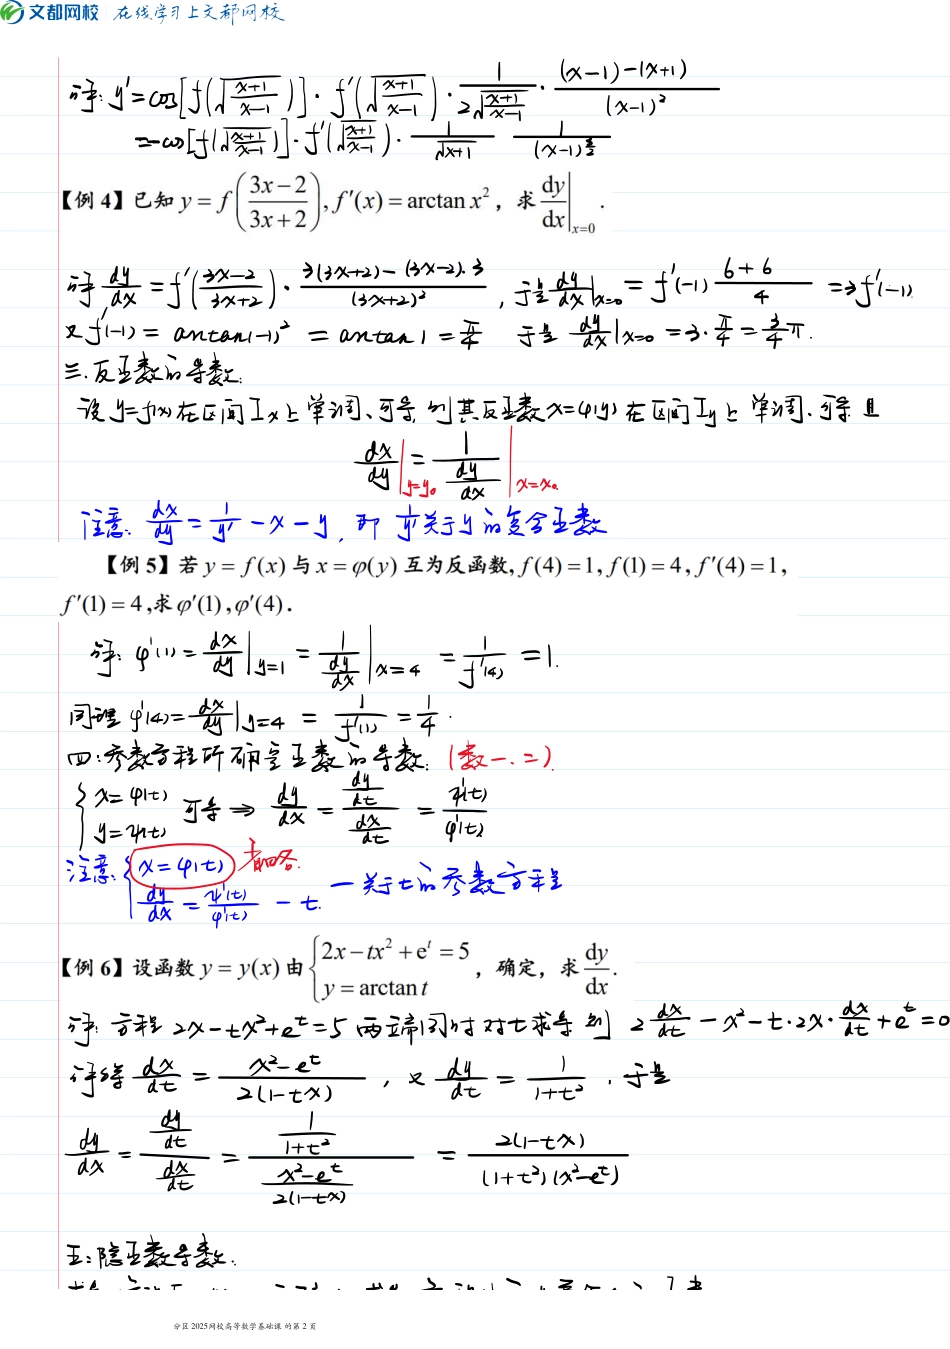 文都网校 在线学习上文都网校
解: y' = cos[f(√((x+1)/(x-1)))]·f'(√((x+1)/(x-1)))·1/(2√((x+1)/(x-1)))·((x-1)-(x+1))/(x-1)²
= -cos[f(√((x+1)/(x-1)))]·f'(√((x+1)/(x-1)))·1/√(x+1) 1/(x-1)^(3/2)
【例 4】已知 y = f((3x-2)/(3x+2)), f'(x) = arctan x², 求 dy/dx|x=0 .
解 dy/dx = f'((3x-2)/(3x+2))·(3(3x+2)-(3x-2)·3)/(3x+2)², 于是 dy/dx|x=0 = f'(-1) (6+6)/4 = 3f'(-1)
又 f'(-1) = arctan(-1)² = arctan 1 = π/4 于是 dy/dx|x=0 = 3·π/4 = 3/4 π.
三.反函数的导数:
设 y=f(x) 在区间 Ix 上单调、可导,则其反函数 x=φ(y) 在区间 Iy 上单调、可导且
dx/dy|y=y₀ = 1/(dy/dx)|x=x₀
注意: dx/dy = 1/y' - x - y, 即 1/y' 关于 y 的复合函数
【例 5】若 y = f(x) 与 x = φ(y) 互为反函数, f(4) = 1, f(1) = 4, f'(4) = 1,
f'(1) = 4, 求 φ'(1), φ'(4) .
解: φ'(1) = dx/dy|y=1 = 1/(dy/dx)|x=4 = 1/f'(4) = 1.
同理 φ'(4) = dx/dy|y=4 = 1/f'(1) = 1/4 .
四:参数方程所确定函数的导数: (数一.二)
{x=φ(t) y=ψ(t) 可导 ⇒ dy/dx = (dy/dt)/(dx/dt) = ψ'(t)/φ'(t)
注意: {x=φ(t) 省略. dy/dx = ψ'(t)/φ'(t) - t. — 关于 t 的参数方程
【例 6】设函数 y = y(x) 由 {2x - tx² + e^t = 5 y = arctan t , 确定, 求 dy/dx .
解: 方程 2x-tx²+e^t=5 两端同时对 t 求导 则 2 dx/dt - x² - t·2x·dx/dt + e^t = 0
解得 dx/dt = (x²-e^t)/(2(1-tx)), 又 dy/dt = 1/(1+t²) . 于是
dy/dx = (dy/dt)/(dx/dt) = (1/(1+t²))/((x²-e^t)/(2(1-tx))) = 2(1-tx)/((1+t²)(x²-e^t))
五:隐函数导数:
分区 2025网校高等数学基础课 的第 2 页